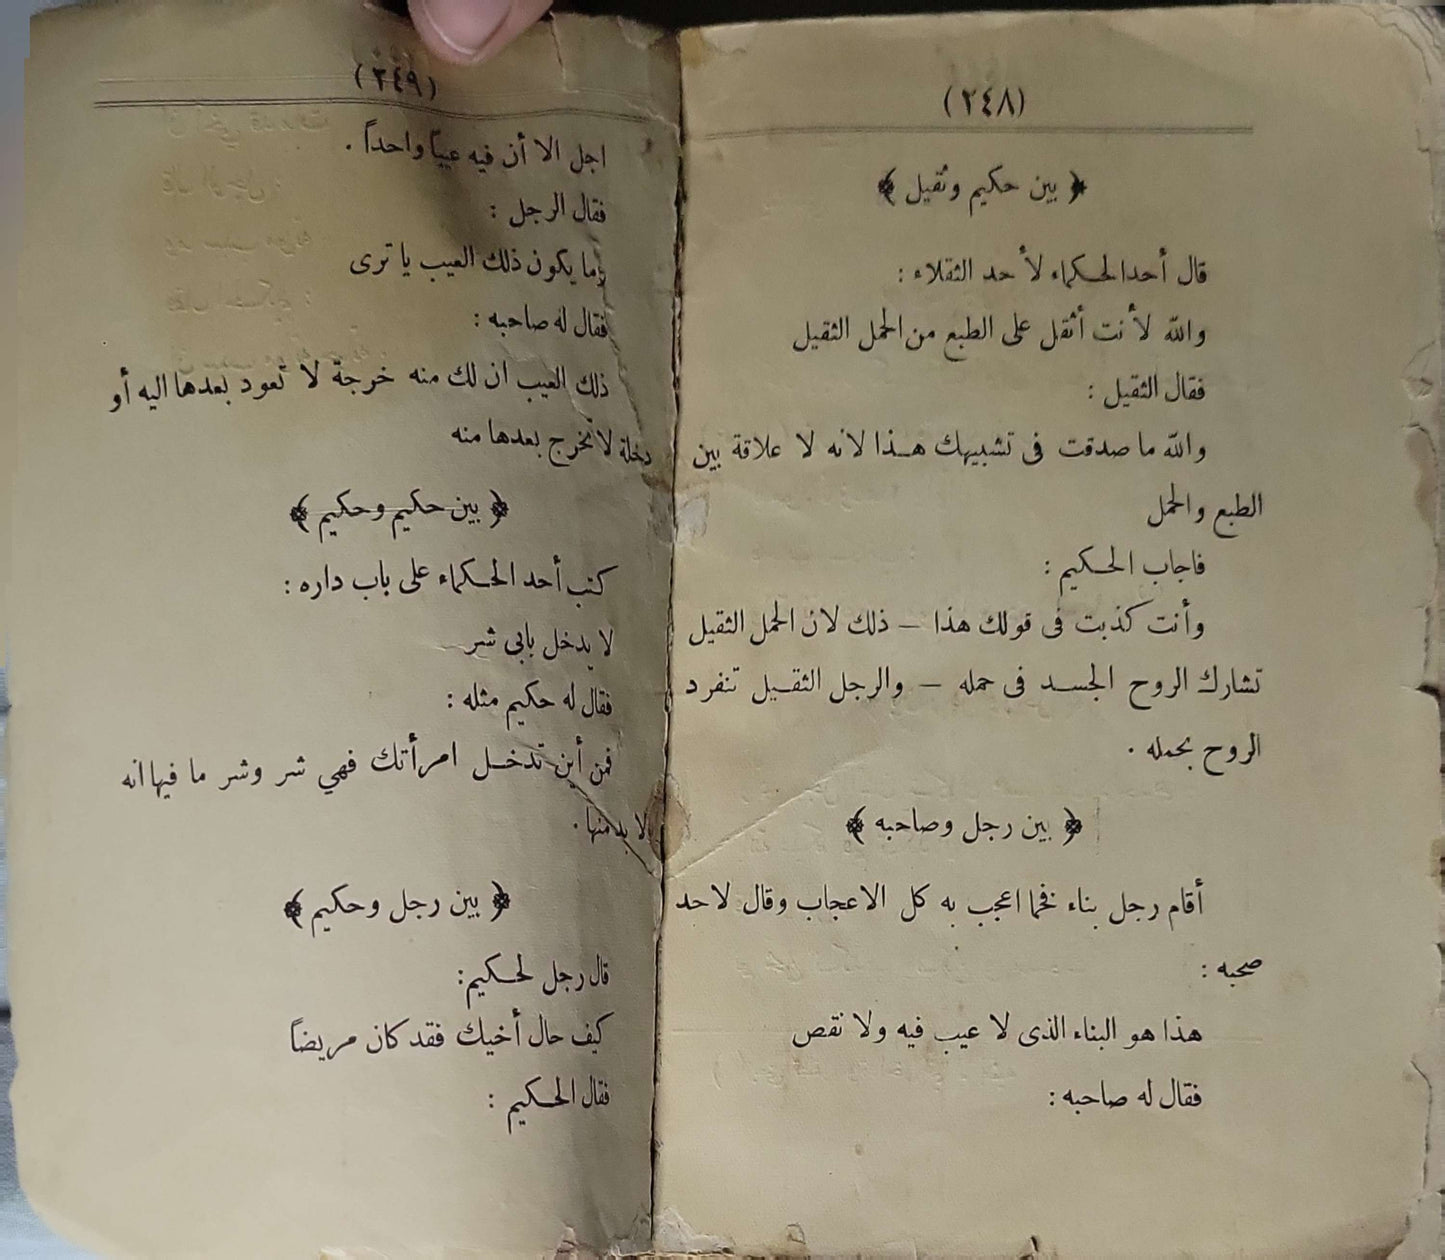 (٢٤٨)
﴿ بين حكيم وثقيل ﴾
قال أحد الحكماء لأحد الثقلاء :
والله لأنت أثقل على الطبع من الحمل الثقيل
فقال الثقيل :
والله ما صدقت فى تشبيهك هذا لانه لا علاقة بين
الطبع والحمل
فاجاب الحكيم :
وأنت كذبت فى قولك هذا – ذلك لان الحمل الثقيل
تشارك الروح الجسد فى حمله – والرجل الثقيل تنفرد
الروح بحمله .
﴿ بين رجل وصاحبه ﴾
أقام رجل بناء فخما اعجب به كل الاعجاب وقال لاحد
صحبه :
هذا هو البناء الذى لا عيب فيه ولا نقص
فقال له صاحبه :
(٢٤٩)
اجل الا أن فيه عيباً واحداً .
فقال الرجل :
وما يكون ذلك العيب يا ترى
فقال له صاحبه :
ذلك العيب ان لك منه خرجة لا تعود بعدها اليه أو
دخلة لا تخرج بعدها منه
﴿ بين حكيم وحكيم ﴾
كتب أحد الحكماء على باب داره :
لا يدخل بابى شر
فقال له حكيم مثله :
فمن أين تدخل امرأتك فهي شر وشر ما فيها انه
لا بد منها .
﴿ بين رجل وحكيم ﴾
قال رجل لحكيم :
كيف حال أخيك فقد كان مريضاً
فقال الحكيم :